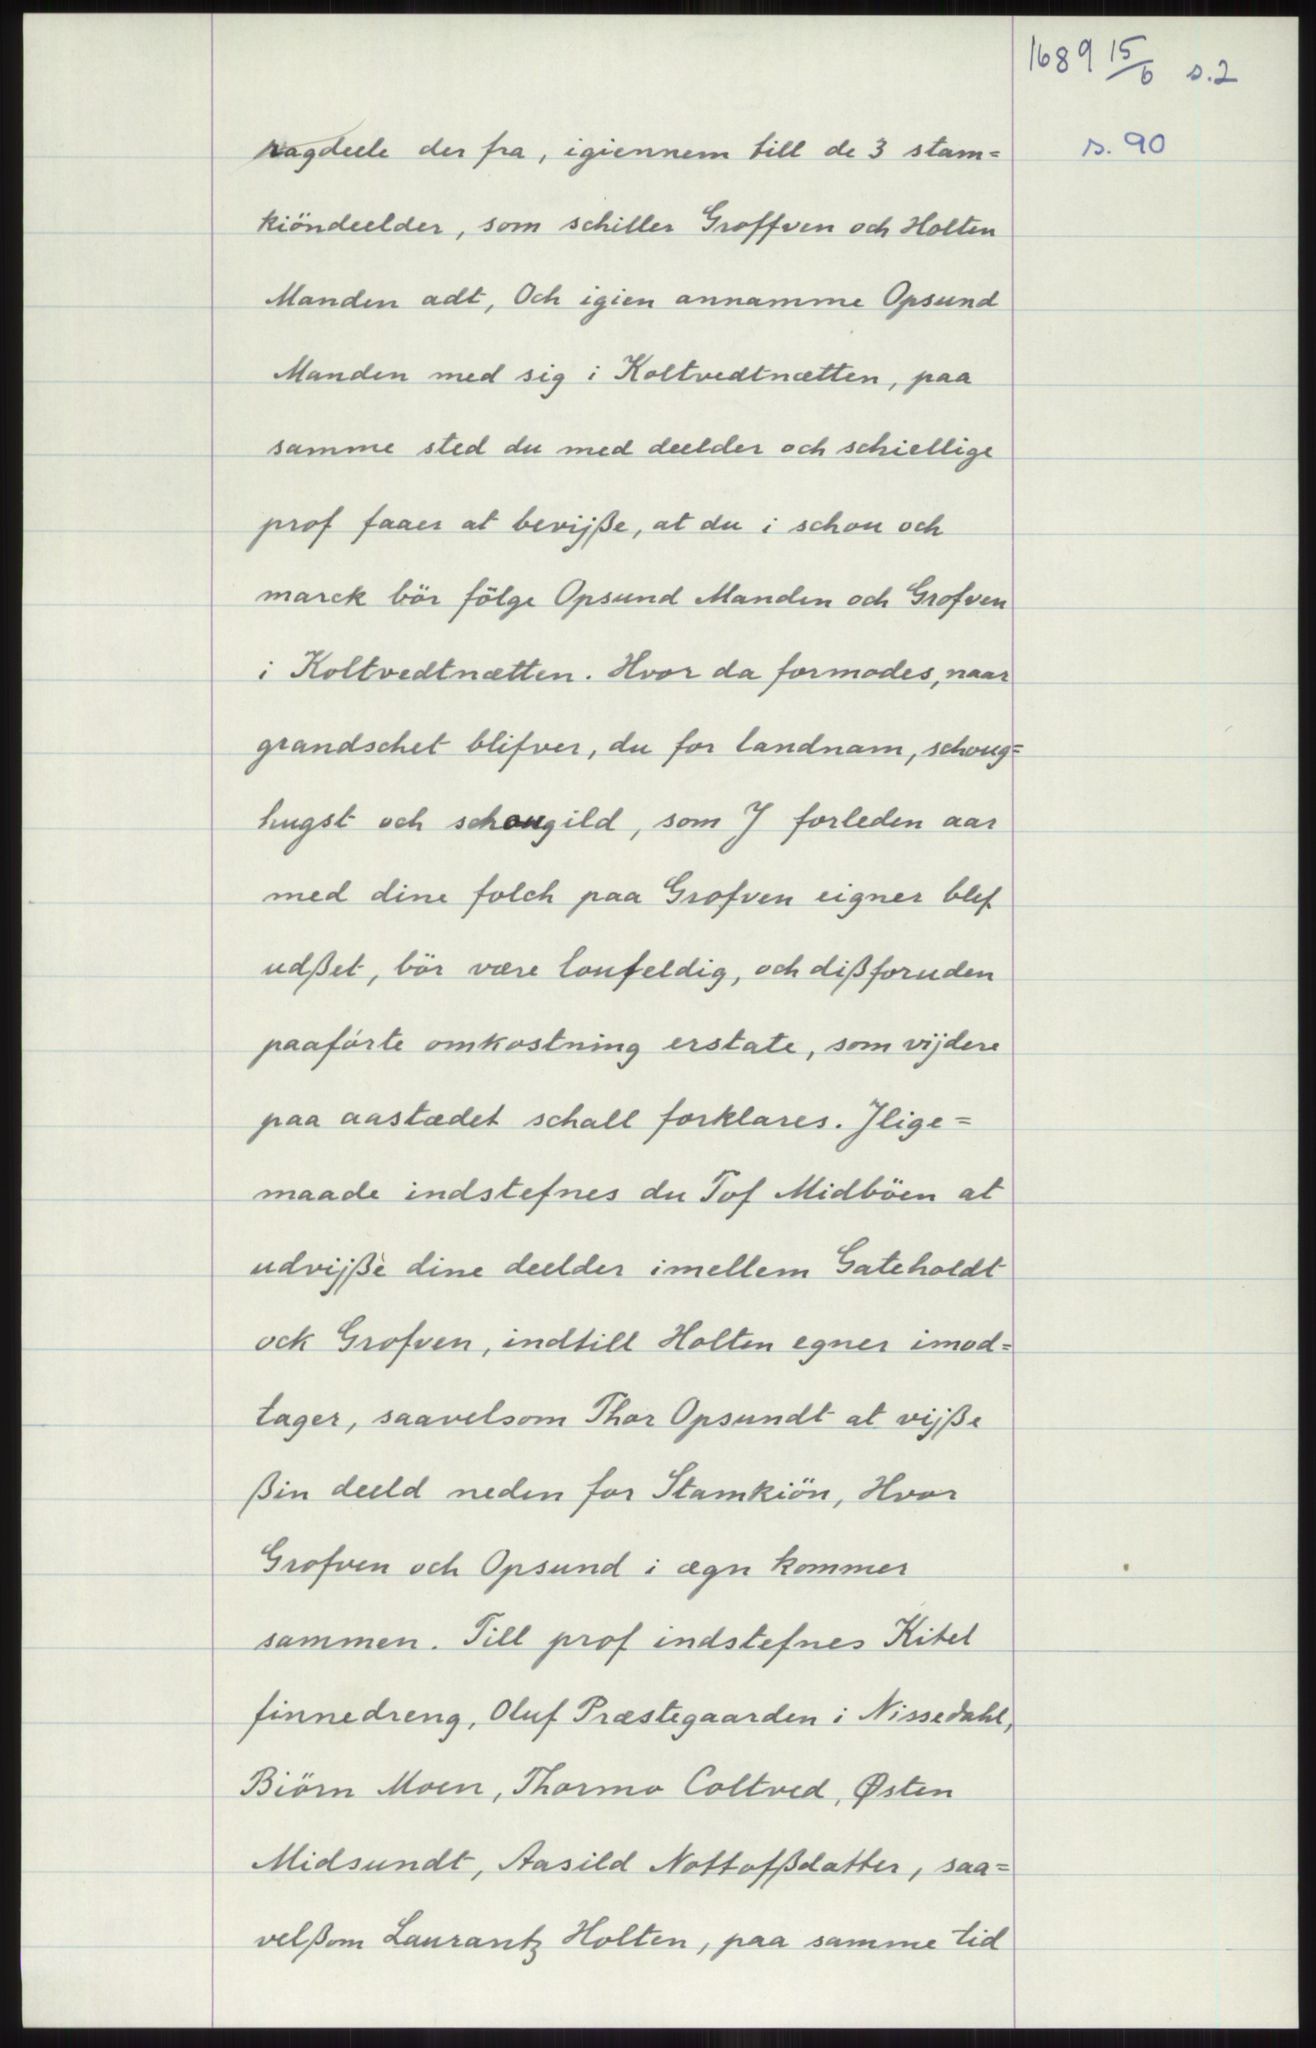 1689 15/6 s.2
s. 90
ragdeele der fra, igiennem till de 3 stam=
kiöndeelder, som schiller Groffven och Holten
Manden adt, Och igien annamme Opsund
Manden med sig i Koltvedtnætten, paa
samme sted du med deelder och schiellige
prof faaer at bevijße, at du i schou och
marck bör fölge Opsund Manden och Grofven
i Koltvedtnætten. Hvor da formodes, naar
grandschet blifver, du for landnam, schoug=
hugst och schougild, som J forleden aar
med dine folch paa Grofven eigner blef
udßet, bör være loufeldig, och dißforuden
paaförte omkostning erstate, som vijdere
paa aastædet schall forklares. Jlige=
maade indstefnes du Tof Midböen at
udvijße dine deelder imellem Gateholdt
ock Grofven, indtill Holten egner imod=
tager, saavelsom Thor Opsundt at vijße
ßin deeld neden for Stamkiön, Hvor
Grofven och Opsund i ægn kommer
sammen. Till prof indstefnes Kitel
finnedreng, Oluf Præstegaarden i Nissedahl,
Biörn Moen, Thormo Coltved, Østen
Midsundt, Aasild Nottofßdatter, saa=
velßom Laurantz Holten, paa samme tid